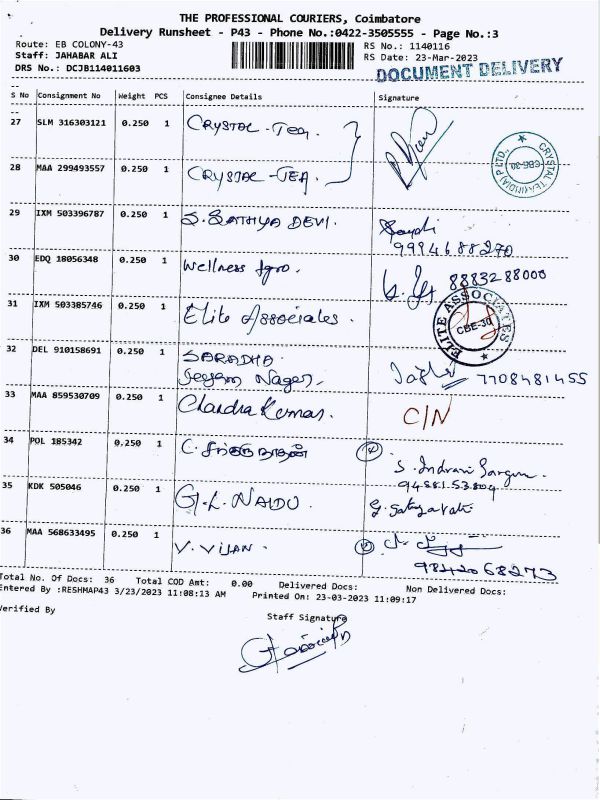 THE PROFESSIONAL COURIERS, Coimbatore
Delivery Runsheet - P43 - Phone No.:0422-3505555 - Page No.:3
Route: EB COLONY-43 RS No.: 1140116
Staff: JAHABAR ALI RS Date: 23-Mar-2023
DRS No.: DCJB114011603 DOCUMENT DELIVERY
S No Consignment No Weight PCS Consignee Details Signature
27 SLM 316303121 0.250 1 CRYSTAL-Tea.
28 MAA 299493557 0.250 1 CRYSTAL-TEA
CRYSTAL TEA (INDIA) P LTD.,
29 IXM 503396787 0.250 1 S. SATHYA DEVI.
9994688270
30 EDQ 18056348 0.250 1 Wellness Agro. 8883288000
31 IXM 503385746 0.250 1 Elite Associates.
ELITE ASSOCIATES CBE-30
32 DEL 910158691 0.250 1 SARADHA
Jeyam Nagar. 7708481455
33 MAA 859530709 0.250 1 Chandra Kumar. C/N
34 POL 185342 0.250 1 C.
S. Indrani
35 KDK 505046 0.250 1 G.L. NAIDU.
36 MAA 568633495 0.250 1 V. VIJAN.
9842068273
Total No. Of Docs: 36 Total COD Amt: 0.00 Delivered Docs: Non Delivered Docs:
Entered By :RESHMAP43 3/23/2023 11:08:13 AM Printed On: 23-03-2023 11:09:17
Verified By Staff Signature